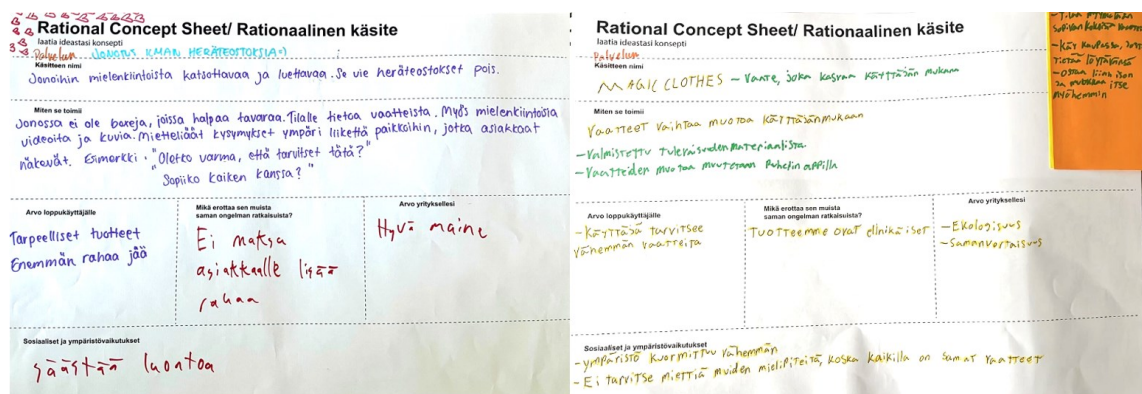 Rational Concept Sheet/ Rationaalinen käsite
laatia ideastasi konsepti
Palvelun
Käsitteen nimi
JONOTUS ILMAN HERÄTEOSTOKSIA
Jonoihin mielenkiintoista katsottavaa ja luettavaa. Se vie heräteostokset pois.
Miten se toimii
Jonossa ei ole boxeja, joissa halpaa tavaraa. Tilalle tietoa vaatteista. Myös mielenkiintoisia
videoita ja kuvia. Mietteliäät kysymykset ympäri liikettä paikkoihin, jotka asiakkaat
näkevät. Esimerkki. "Oletko varma, että tarvitset tätä?"
Sopiiko kaiken kanssa?"
Arvo loppukäyttäjälle
Tarpeelliset tuotteet
Enemmän rahaa jää
Mikä erottaa sen muista
saman ongelman ratkaisuista?
Ei maksa
asiakkaalle lisää
rahaa
Arvo yrityksellesi
Hyvä maine
Sosiaaliset ja ympäristövaikutukset
säästää luontoa
Rational Concept Sheet/ Rationaalinen käsite
laatia ideastasi konsepti
Palvelun
Käsitteen nimi
MAGIC CLOTHES - Vaate, joka kasvaa käyttäjän mukaan
Miten se toimii
Vaatteet vaihtaa muotoa käyttäjän mukaan
- Valmistettu tulevaisuuden materiaalista.
- Vaatteiden muotoa muutetaan Puhelin appilla
Arvo loppukäyttäjälle
- Käyttäjä tarvitsee
vähemmän vaatteita
Mikä erottaa sen muista
saman ongelman ratkaisuista?
Tuotteemme ovat elinikäiset
Arvo yrityksellesi
- Ekologisuus
- Samanvertaisuus
Sosiaaliset ja ympäristövaikutukset
- ympäristö kuormittuu vähemmän
- Ei tarvitse miettiä muiden mielipiteitä, koska kaikilla on samat vaatteet
- Käy kaupassa,
- Ostaa liian ison
ja muokkaa itse
myöhemmin